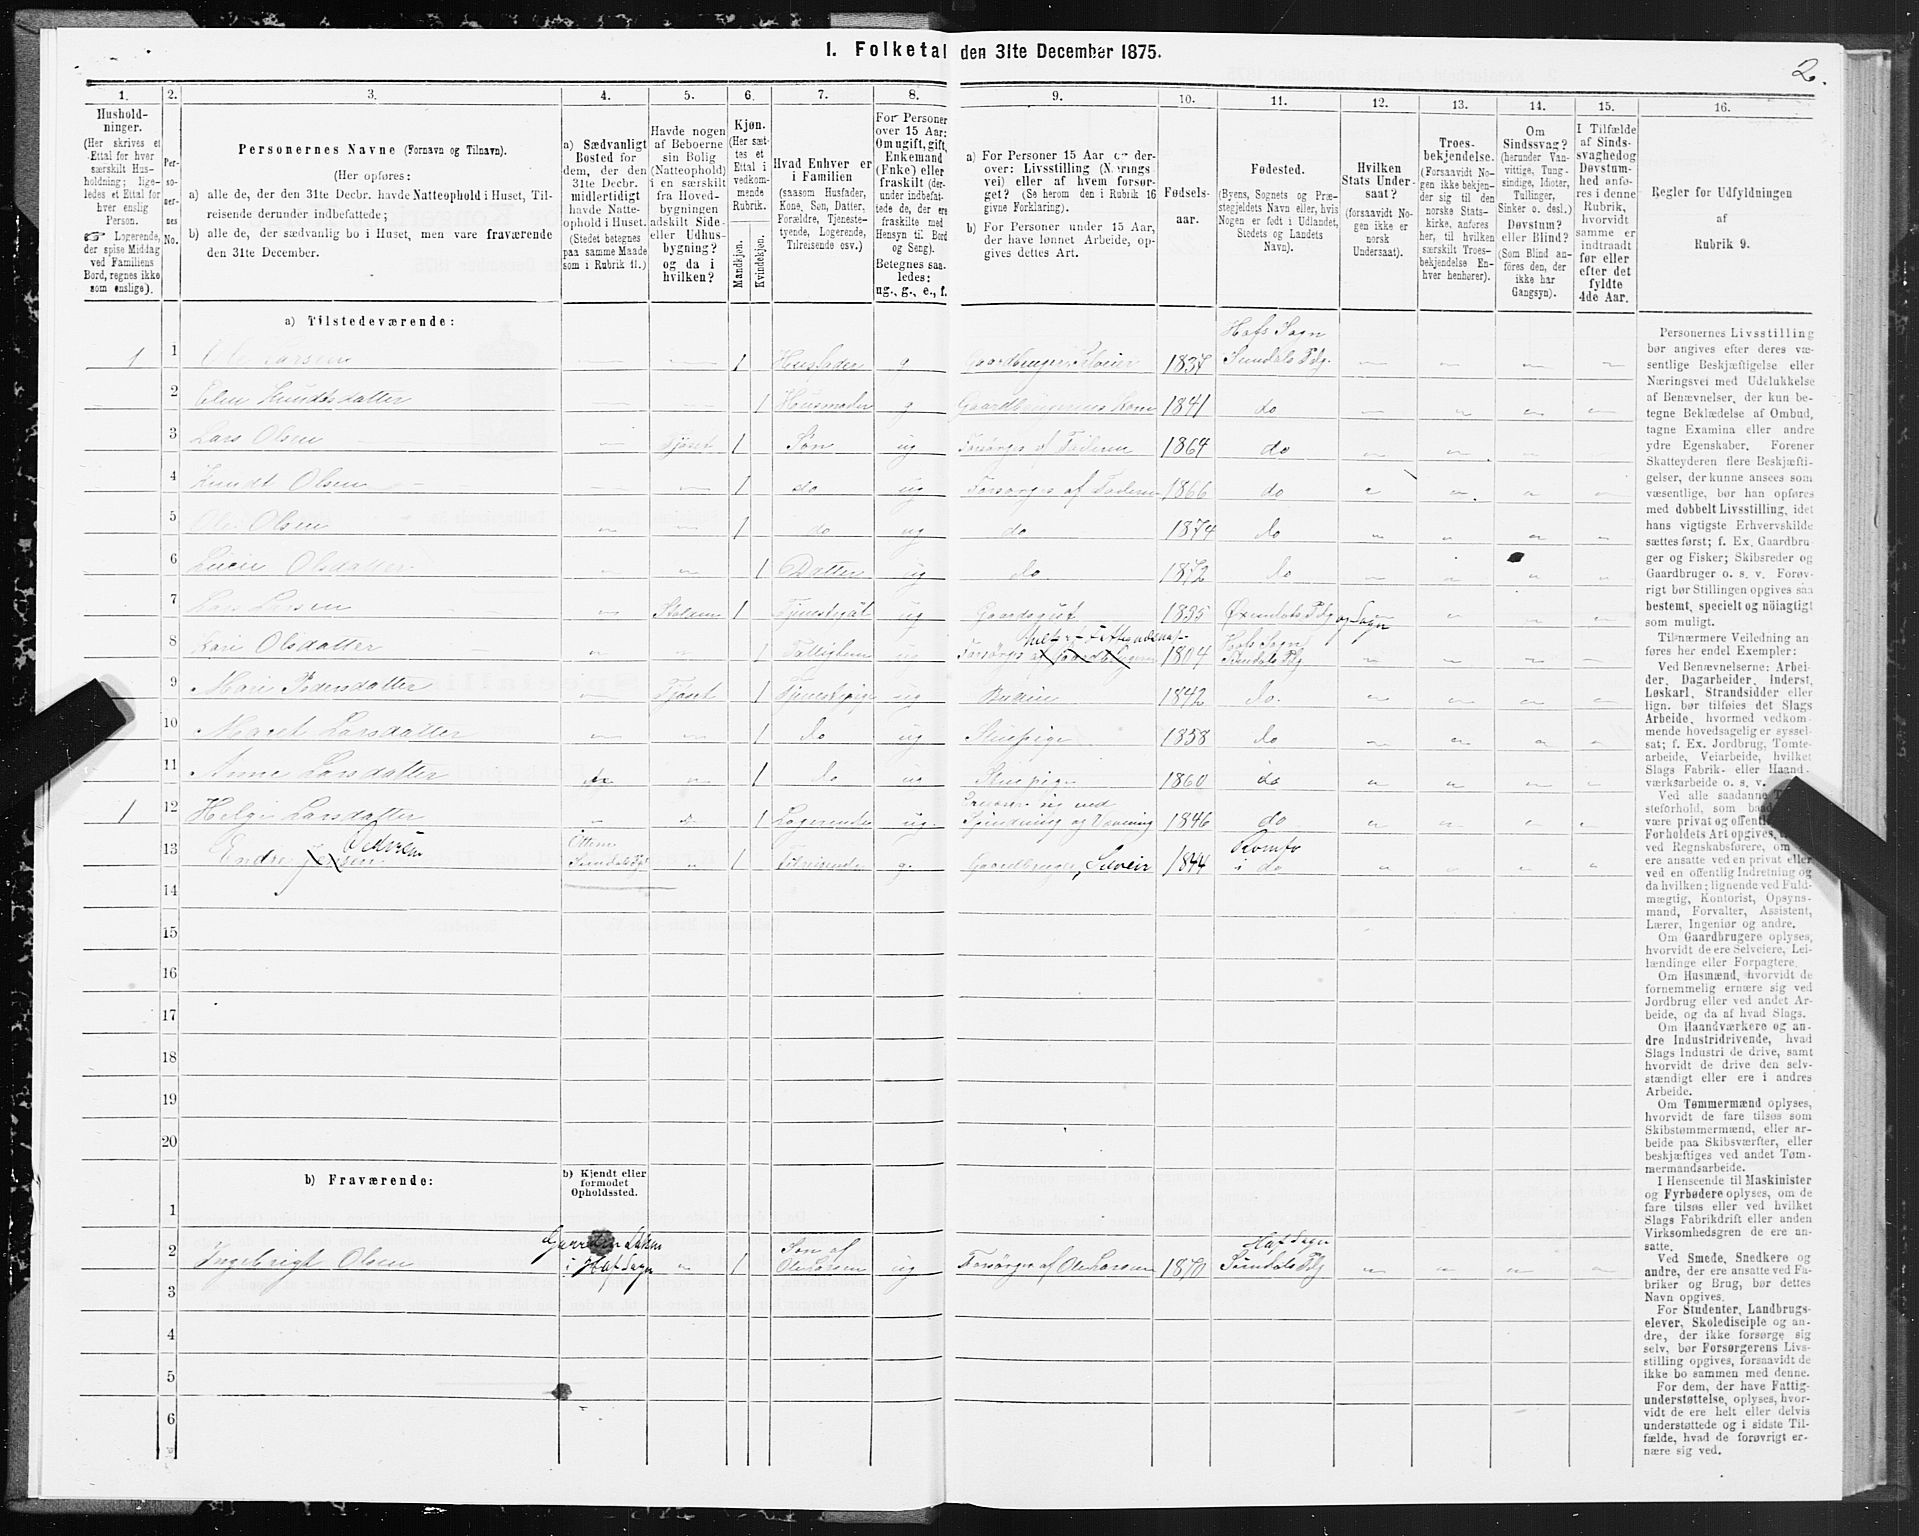 1. Folketal den 31te December 1875.
2.
1.
2.
3.
4.
5.
6.
7.
8.
9.
10.
11.
12.
13.
14.
15.
16.
Hushold-
ninger.
(Her skrives et
Ettal for hver
særskilt Hus-
holdning; lige-
ledes et Ettal for
hver enslig
Person.
☞ Logerende,
der spise Middag
ved Familiens
Bord, regnes ikke
som enslige).
Per-
so-
ner-
nes
No.
Personernes Navne (Fornavn og Tilnavn).
(Her opføres:
a) alle de, der den 31te Decbr. havde Natteophold i Huset, Til-
reisende derunder indbefattede;
b) alle de, der sædvanlig bo i Huset, men vare fraværende
den 31te December.
a) Sædvanligt
Bosted for
dem, der den
31te Decbr.
midlertidigt
havde Natte-
ophold i Huset.
(Stedet betegnes
paa samme Maade
som i Rubrik 11.)
Havde nogen
af Beboerne
sin Bolig
(Natteophold)
i en særskilt
fra Hoved-
bygningen
adskilt Side-
eller Udhus-
bygning?
og da i
hvilken?
Kjøn.
(Her sæt-
tes et
Ettal i
vedkom-
mende
Rubrik.
Mandkjøn.
Kvindekjøn.
Hvad Enhver er
i Familien
(saasom Husfader,
Kone, Søn, Datter,
Forældre, Tjeneste-
tyende, Logerende,
Tilreisende osv.)
For Personer
over 15 Aar:
Om ugift, gift,
Enkemand
(Enke) eller
fraskilt (der-
under indbefat-
tede de, der ere
fraskilte med
Hensyn til Bord
og Seng).
Betegnes saa-
ledes:
ug., g., e., f.
a) For Personer 15 Aar og der-
over: Livsstilling (Nærings-
vei) eller af hvem forsør-
get? (Se herom den i Rubrik 16
givne Forklaring).
b) For Personer under 15 Aar,
der have lønnet Arbeide, op-
gives dettes Art.
Fødsels-
aar.
Fødested.
(Byens, Sognets og Præ-
stegjeldets Navn eller, hvis
Nogen er født i Udlandet,
Stedets og Landets
Navn).
Hvilken
Stats Under-
saat?
(forsaavidt No-
gen ikke er
norsk
Undersaat).
Troes-
bekjendelse.
(Forsaavidt No-
gen ikke bekjen-
der sig til den
norske Stats-
kirke, anføres
her, til hvilken
særskilt Troes-
bekjendelse En-
hver henhører).
Om
Sindssvag?
(herunder Van-
vittige, Tung-
sindige, Idioter,
Tullinger,
Sinker o. desl.)
Døvstum?
eller Blind?
(Som Blind an-
føres den, der
ikke har
Gangsyn).
I Tilfælde
af Sinds-
svaghedog
Døvstum-
hed anfø-
res i denne
Rubrik,
hvorvidt
samme er
indtraadt
før eller
efter det
fyldte
4de Aar.
Regler for Udfyldningen
af
Rubrik 9.
a) Tilstedeværende:
1 1 Ole Larsen 1 Husfader g Gaardbruger Selveier 1837 Hofs Sogn Sundals Pdg.
2 Elen Knudsdatter 1 Husmoder g Gaardbrugerens Kone 1841 do
3 Lars Olsen Fjøset 1 Søn ug Forsørges af Faderen 1864 do
4 Knudt Olsen 1 do ug Forsørges af Faderen 1866 do
5 Ole Olsen 1 do ug do 1874 do
6 Olsdatter 1 Datter ug do 1872 do
7 Lars Larsen Stalden 1 ug Gaardsgut 1855 Øxendals Pdg og Sogn
8 Kari Olsdatter 1 ug Forsørges af 1804 Hofs Sogn Sundals Pdg
9 Mari Pedersdatter Fjøset 1 Tjenestepige ug Budeie 1842 do.
10 Maret Larsdatter 1 do ug Stuepige 1858 do
11 Anne Larsdatter 1 do ug Stuepige 1860 do
1 12 Helge Larsdatter 1 Logerende ug. Ernærer sig ved Spinding og Vævning 1846 do
13 Endre Jensen Pedersen Sundals Pdg 1 Tilreisende g. Gaardbruger, Selveir 1844 Romfo i do
14
15
16
17
18
19
20
b) Fraværende:
b) Kjendt eller
formodet
Opholdssted.
1
2 Ingebrigt Olsen i Hof Sogn 1 Søn af Ole Larsen ug Forsørges af Ole Larsen 1870 Hof Sogn Sundals Pdg
3
4
5
6
Personernes Livsstilling
bør angives efter deres væ-
sentlige Beskjæftigelse eller
Næringsvei med Udelukkelse
af Benævnelser, der kun be-
tegne Beklædelse af Ombud,
tagne Examina eller andre
ydre Egenskaber. Forener
Skatteyderen flere Beskjæfti-
gelser, der kunne ansees som
væsentlige, bør han opføres
med dobbelt Livsstilling, idet
hans vigtigste Erhvervskilde
sættes først; f. Ex. Gaardbru-
ger og Fisker; Skibsreder og
Gaardbruger o. s. v. Forøv-
rigt bør Stillingen opgives saa
bestemt, specielt og nöiagtigt
som muligt.
Tilnærmere Veiledning an
føres her endel Exempler:
Ved Benævnelserne: Arbei-
der, Dagarbeider, Inderst,
Løskarl, Strandsidder eller
lign. bør tilføies det Slags
Arbeide, hvormed vedkom-
mende hovedsagelig er syssel-
sat; f. Ex. Jordbrug, Tomte-
arbeide, Veiarbeide, hvilket
Slags Fabrik- eller Haand-
værksarbeide o. s. v.
Ved alle saadanne
steforhold, som
være privat og
Forholdets Art opgives,
ved Regnskabsførere, om
ere ansatte ved en privat eller
ved en offentlig Indretning og
da hvilken; lignende ved Fuld-
mægtig, Kontorist, Opsyns-
mand, Forvalter, Assistent,
Lærer, Ingeniør og andre.
Om Gaardbrugere oplyses,
hvorvidt de ere Selveiere, Lei-
lændinge eller Forpagtere.
Om Husmænd, hvorvidt de
fornemmelig ernære sig ved
Jordbrug eller ved andet Ar-
beide, og da af hvad Slags.
Om Haandværkere og an-
dre Industridrivende, hvad
Slags Industri de drive, samt
hvorvidt de drive den selv-
stændigt eller ere i andres
Arbeide.
Om Tømmermænd oplyses,
hvorvidt de fare tilsøs som
Skibstømmermænd, eller ar-
beide paa Skibsværfter, eller
beskjæftiges ved andet Tøm-
mermandsarbeide.
I Henseende til Maskinister
og Fyrbødere oplyses, om de
fare tilsøs eller ved hvilket
Slags Fabrikdrift eller anden
Virksomhedsgren de ere an-
satte.
Ved Smede, Snedkere og
andre, der ere ansatte ved Fa-
briker og Brug, bør dettes
Navn opgives.
For Studenter, Landbrugs-
elever, Skoledisciple og an-
dre, der ikke forsørge sig
selv, bør Forsørgerens Livs-
stilling opgives, forsaavidt de
ikke bo sammen med denne.
For dem, der have Fattig-
understøttelse, oplyses, hvor-
vidt de ere helt eller delvis
understøttede og i sidste Til-
fælde, hvad de forøvrigt er-
nære sig ved.